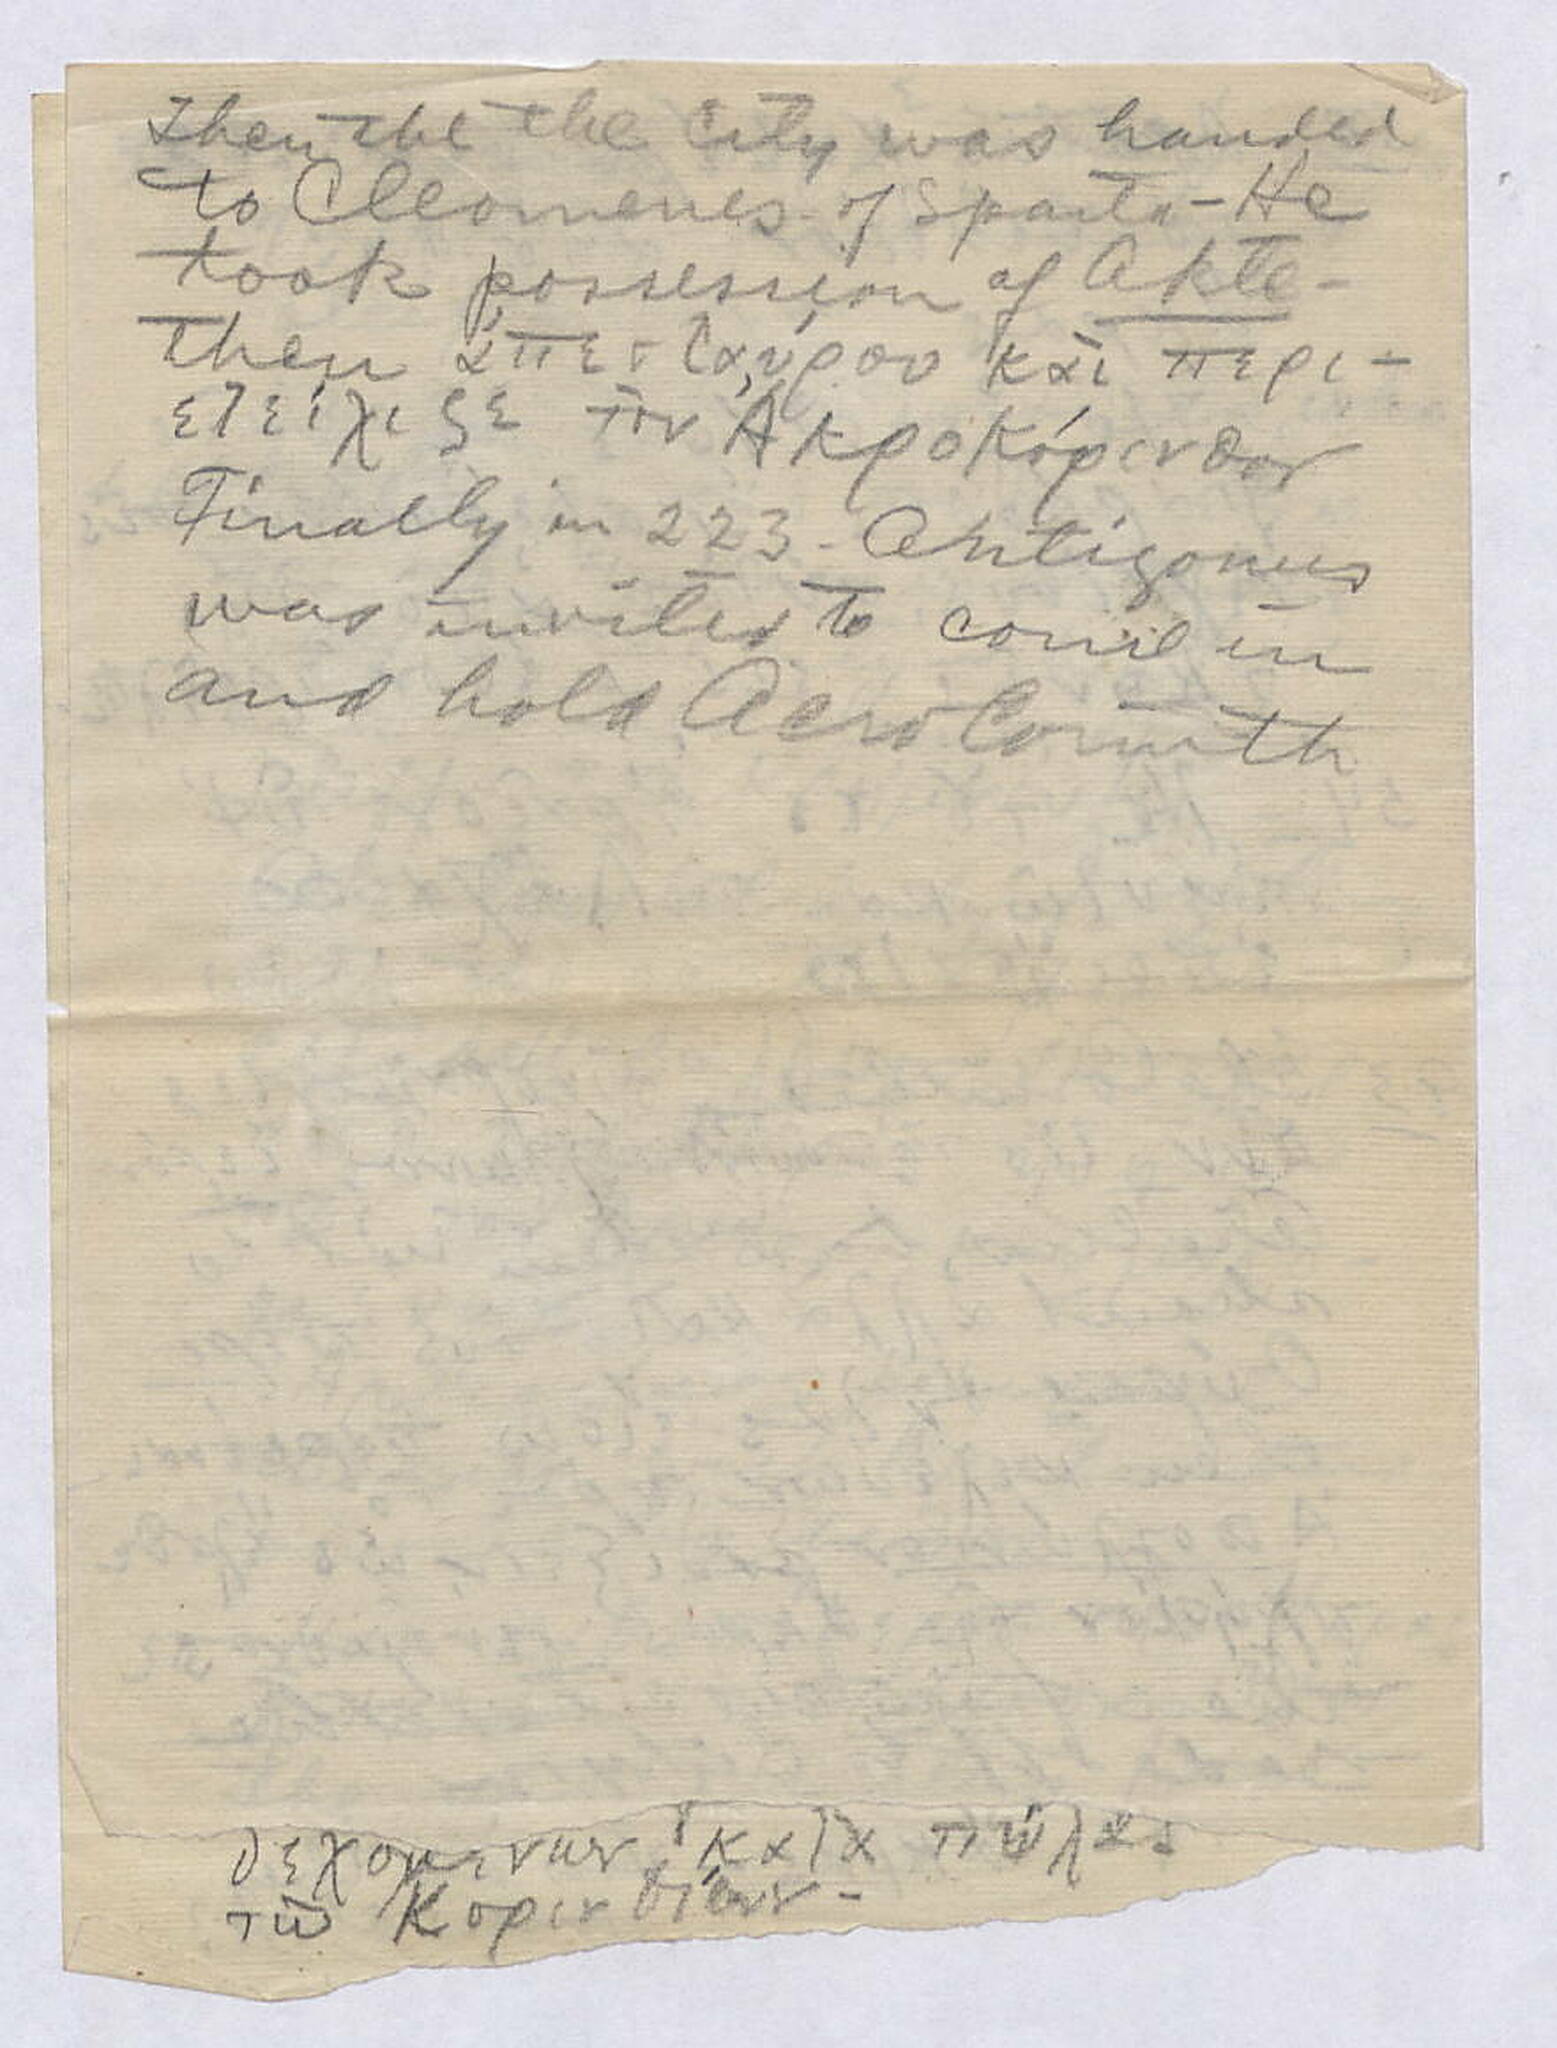 Then the the City was handed
to Cleomenes of Sparta - He
took possession of Akte -
then ἀπεσταύρου καὶ περι-
ετείχιζε τὸν Ἀκροκόρινθον
Finally in 223 - Antigonus
was invited to come in
and hold Acro Corinth
δεχομενων κατα πύλας
τῶ Κορινθίων -